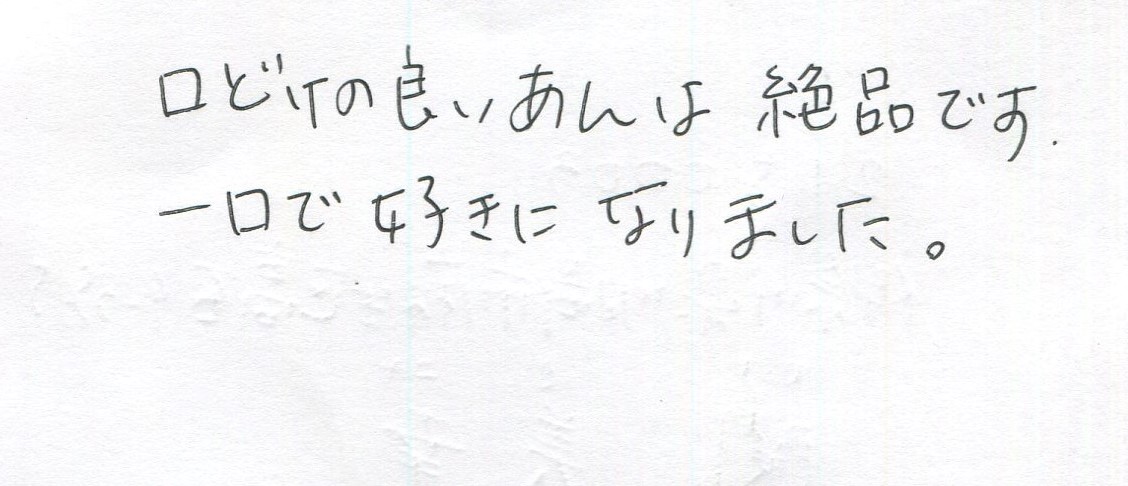 口どけの良いあんは絶品です.
一口で好きになりました。